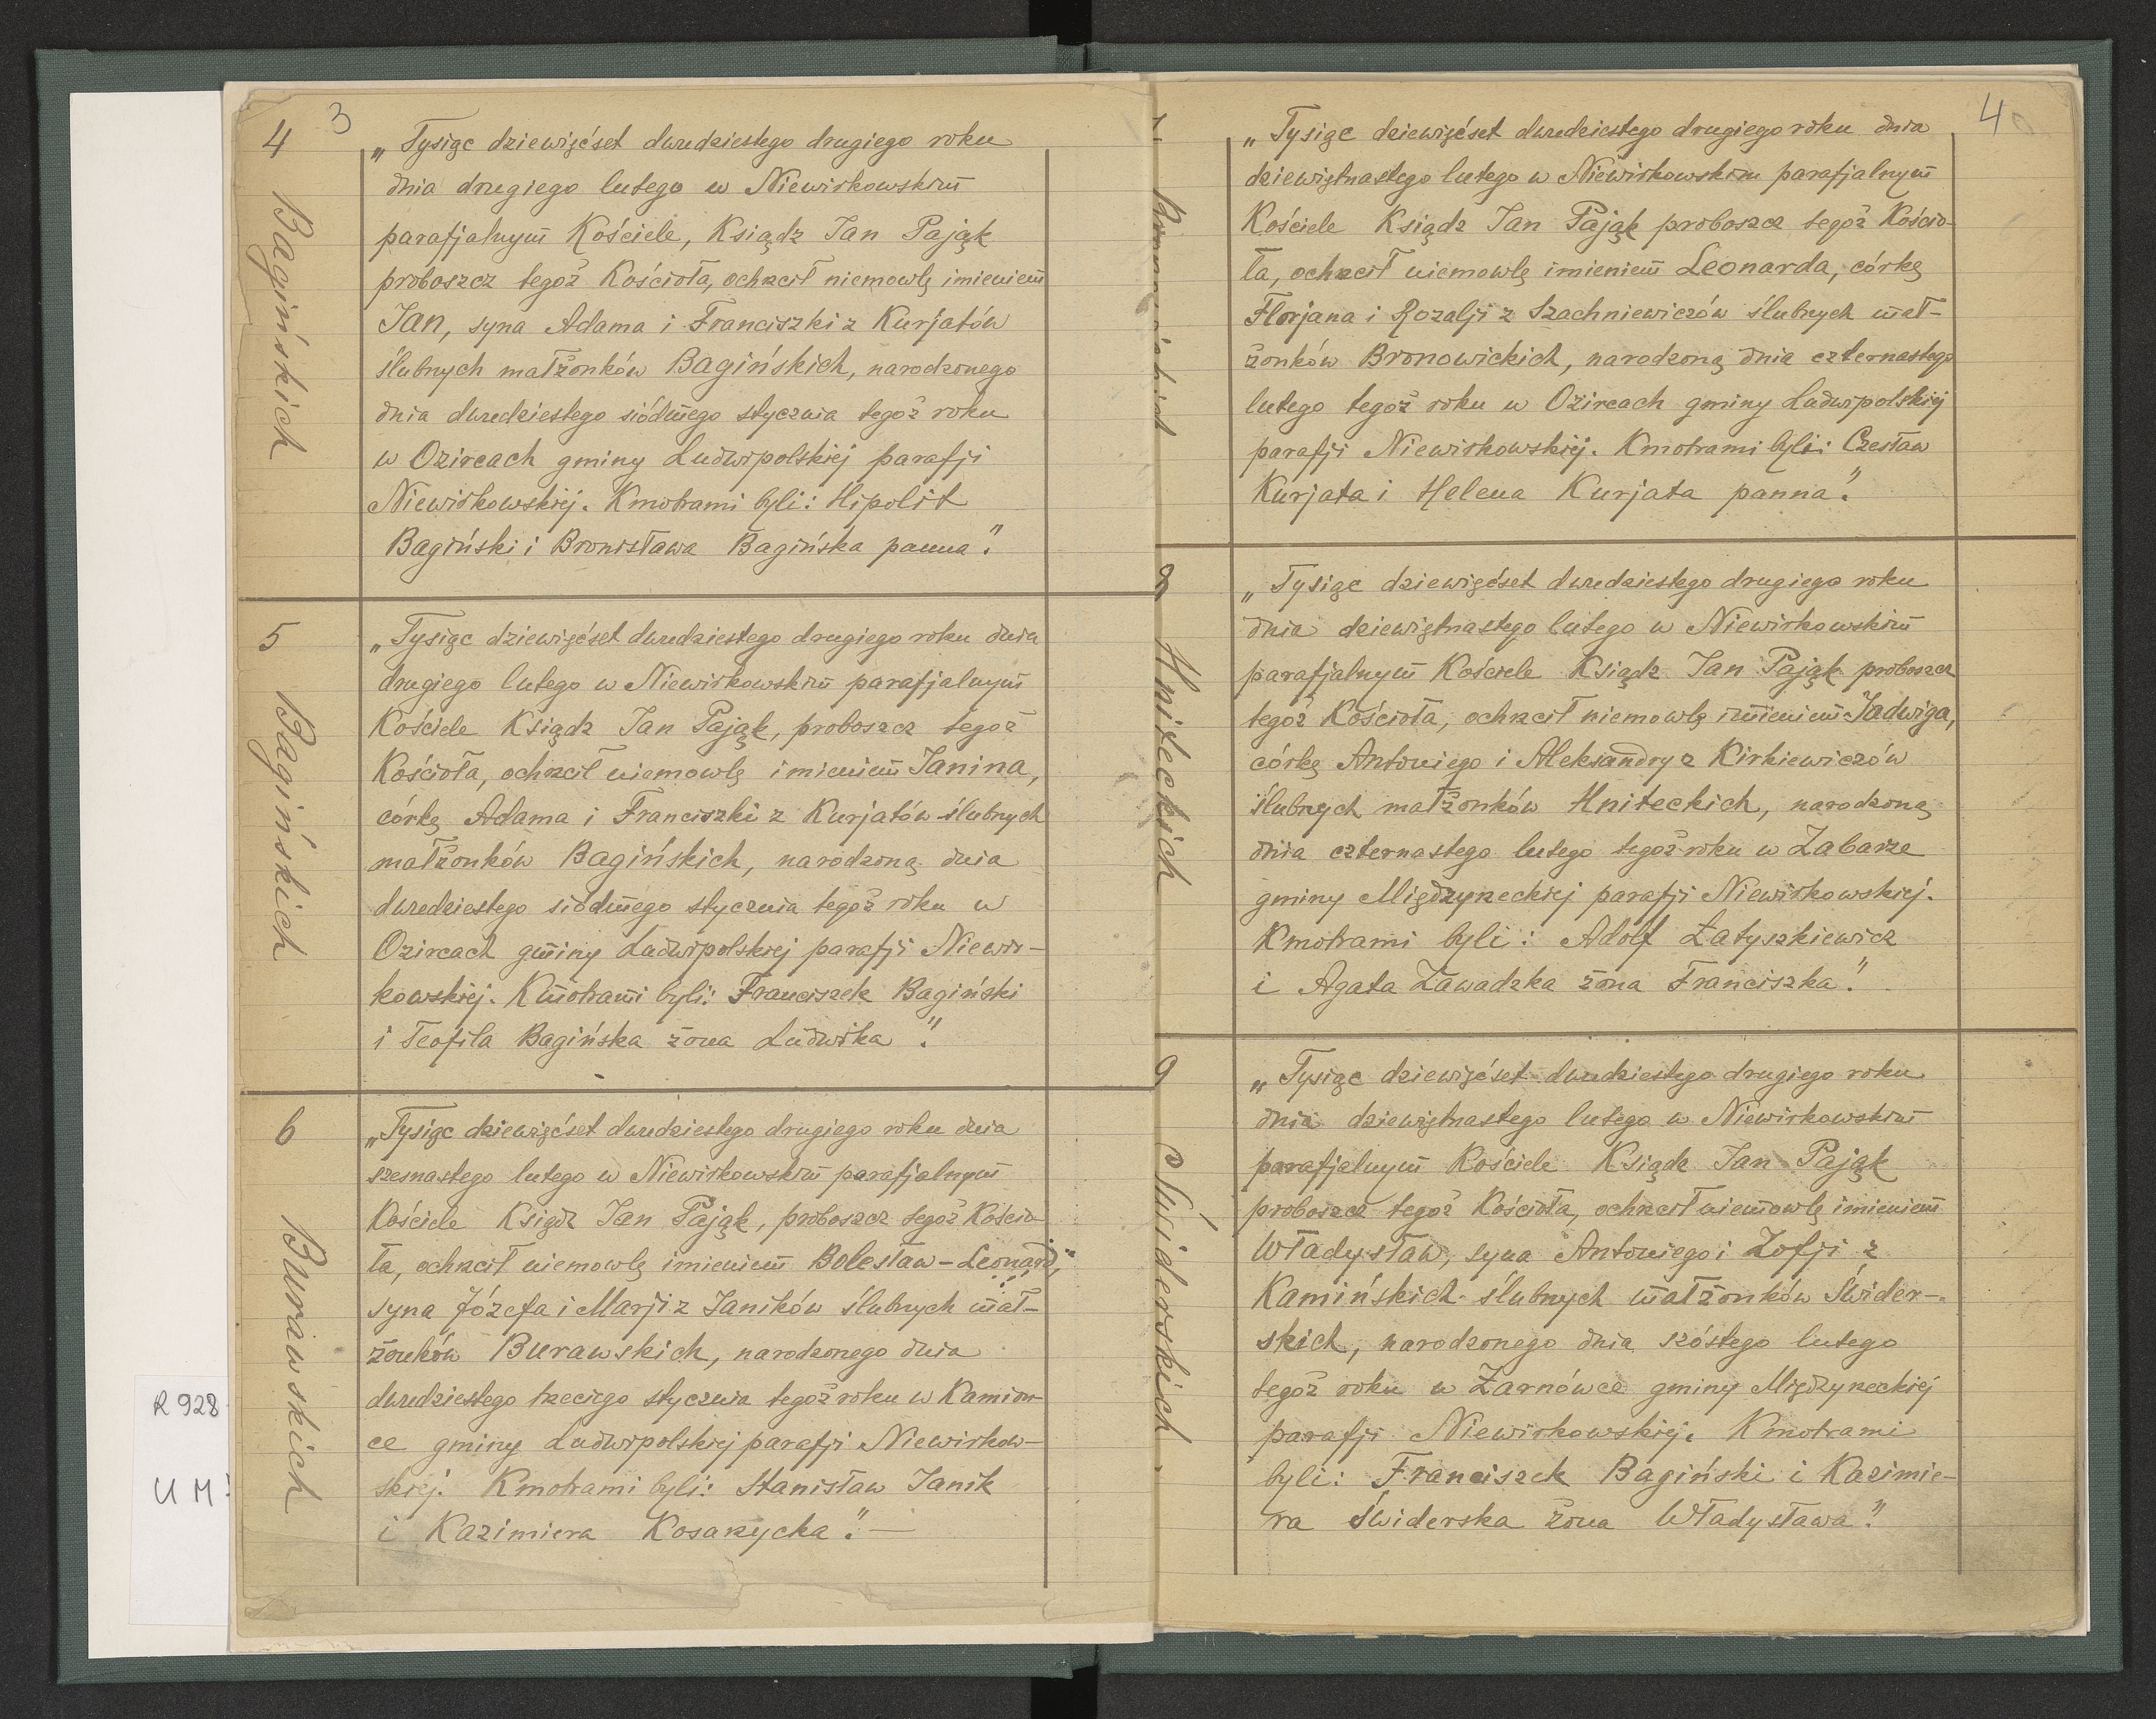 3
4
Bagińskich
„Tysiąc dziewięćset dwudziestego drugiego roku
dnia drugiego lutego w Niewirkowskim
parafjalnym Kościele, Ksiądz Jan Pająk
proboszcz tegoż Kościoła, ochrzcił niemowlę imieniem
Jan, syna Adama i Franciszki z Kurjatów
ślubnych małżonków Bagińskich, narodzonego
dnia dwudziestego siódmego stycznia tegoż roku
w Ozircach gminy Ludwipolskiej parafji
Niewirkowskiej. Kmotrami byli: Hipolit
Bagiński i Bronisława Bagińska panna".
5
Bagińskich
„Tysiąc dziewięćset dwudziestego drugiego roku dnia
drugiego lutego w Niewirkowskim parafjalnym
Kościele Ksiądz Jan Pająk, proboszcz tegoż
Kościoła, ochrzcił niemowlę imieniem Janina,
córkę Adama i Franciszki z Kurjatów ślubnych
małżonków Bagińskich, narodzoną dnia
dwudziestego siódmego stycznia tegoż roku w
Ozircach gminy Ludwipolskiej parafji Niewir-
kowskiej. Kmotrami byli: Franciszek Bagiński
i Teofila Bagińska żona Ludwika".
6
Burawskich
„Tysiąc dziewięćset dwudziestego drugiego roku dnia
szesnastego lutego w Niewirkowskim parafjalnym
Kościele Ksiądz Jan Pająk, proboszcz tegoż Kościo-
ła, ochrzcił niemowlę imieniem Bolesław-Leonard,
syna Józefa i Marji z Janików ślubnych mał-
żonków Burawskich, narodzonego dnia
dwudziestego trzeciego stycznia tegoż roku w Kamion-
ce gminy Ludwipolskiej parafji Niewirkow-
skiej. Kmotrami byli: Stanisław Janik
i Kazimiera Kosarzycka".
R 928
U M
4
„Tysiąc dziewięćset dwudziestego drugiego roku dnia
dziewiętnastego lutego w Niewirkowskim parafjalnym
Kościele Ksiądz Jan Pająk proboszcz tegoż Kościo-
ła, ochrzcił niemowlę imieniem Leonarda, córkę
Florjana i Rozalji z Szachniewiczów ślubnych mał-
żonków Bronowickich, narodzoną dnia czternastego
lutego tegoż roku w Ozircach gminy Ludwipolskiej
parafji Niewirkowskiej. Kmotrami byli: Czesław
Kurjata i Helena Kurjata panna".
8
Hniteckich
„Tysiąc dziewięćset dwudziestego drugiego roku
dnia dziewiętnastego lutego w Niewirkowskim
parafjalnym Kościele Ksiądz Jan Pająk proboszcz
tegoż Kościoła, ochrzcił niemowlę imieniem Jadwiga,
córkę Antoniego i Aleksandry z Kirkiewiczów
ślubnych małżonków Hniteckich, narodzoną
dnia czternastego lutego tegoż roku w Zabarze
gminy Międzyrzeckiej parafji Niewirkowskiej.
Kmotrami byli: Adolf Łatyszkiewicz
i Agata Zawadzka żona Franciszka".
9
Świderskich
„Tysiąc dziewięćset dwudziestego drugiego roku
dnia dziewiętnastego lutego w Niewirkowskim
parafjalnym Kościele Ksiądz Jan Pająk
proboszcz tegoż Kościoła, ochrzcił niemowlę imieniem
Władysław, syna Antoniego i Zofji z
Kamińskich ślubnych małżonków Świder-
skich, narodzonego dnia szóstego lutego
tegoż roku w Żarnówce gminy Międzyrzeckiej
parafji Niewirkowskiej. Kmotrami
byli: Franciszek Bagiński i Kazimie-
ra Świderska żona Władysława".